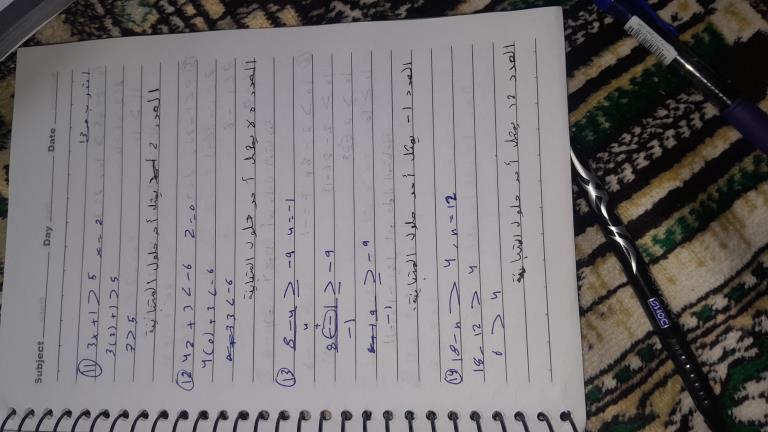 Subject Day Date
11 3x+1 > 5 x = 2
3(2)+1 > 5
7 > 5
العدد 2 يمثل أحد حلول المتباينة
12 4z + 3 < -6 z = 0
4(0) + 3 < -6
3 < -6
العدد 0 لا يمثل أحد حلول المتباينة
13 ≥ -9 u = -1
≥ -9
-1
≥ -9
العدد -1 يمثل أحد حلول المتباينة
14 18 - n > 4 , n = 12
18 - 12 > 4
6 > 4
العدد 12 يمثل أحد حلول المتباينة